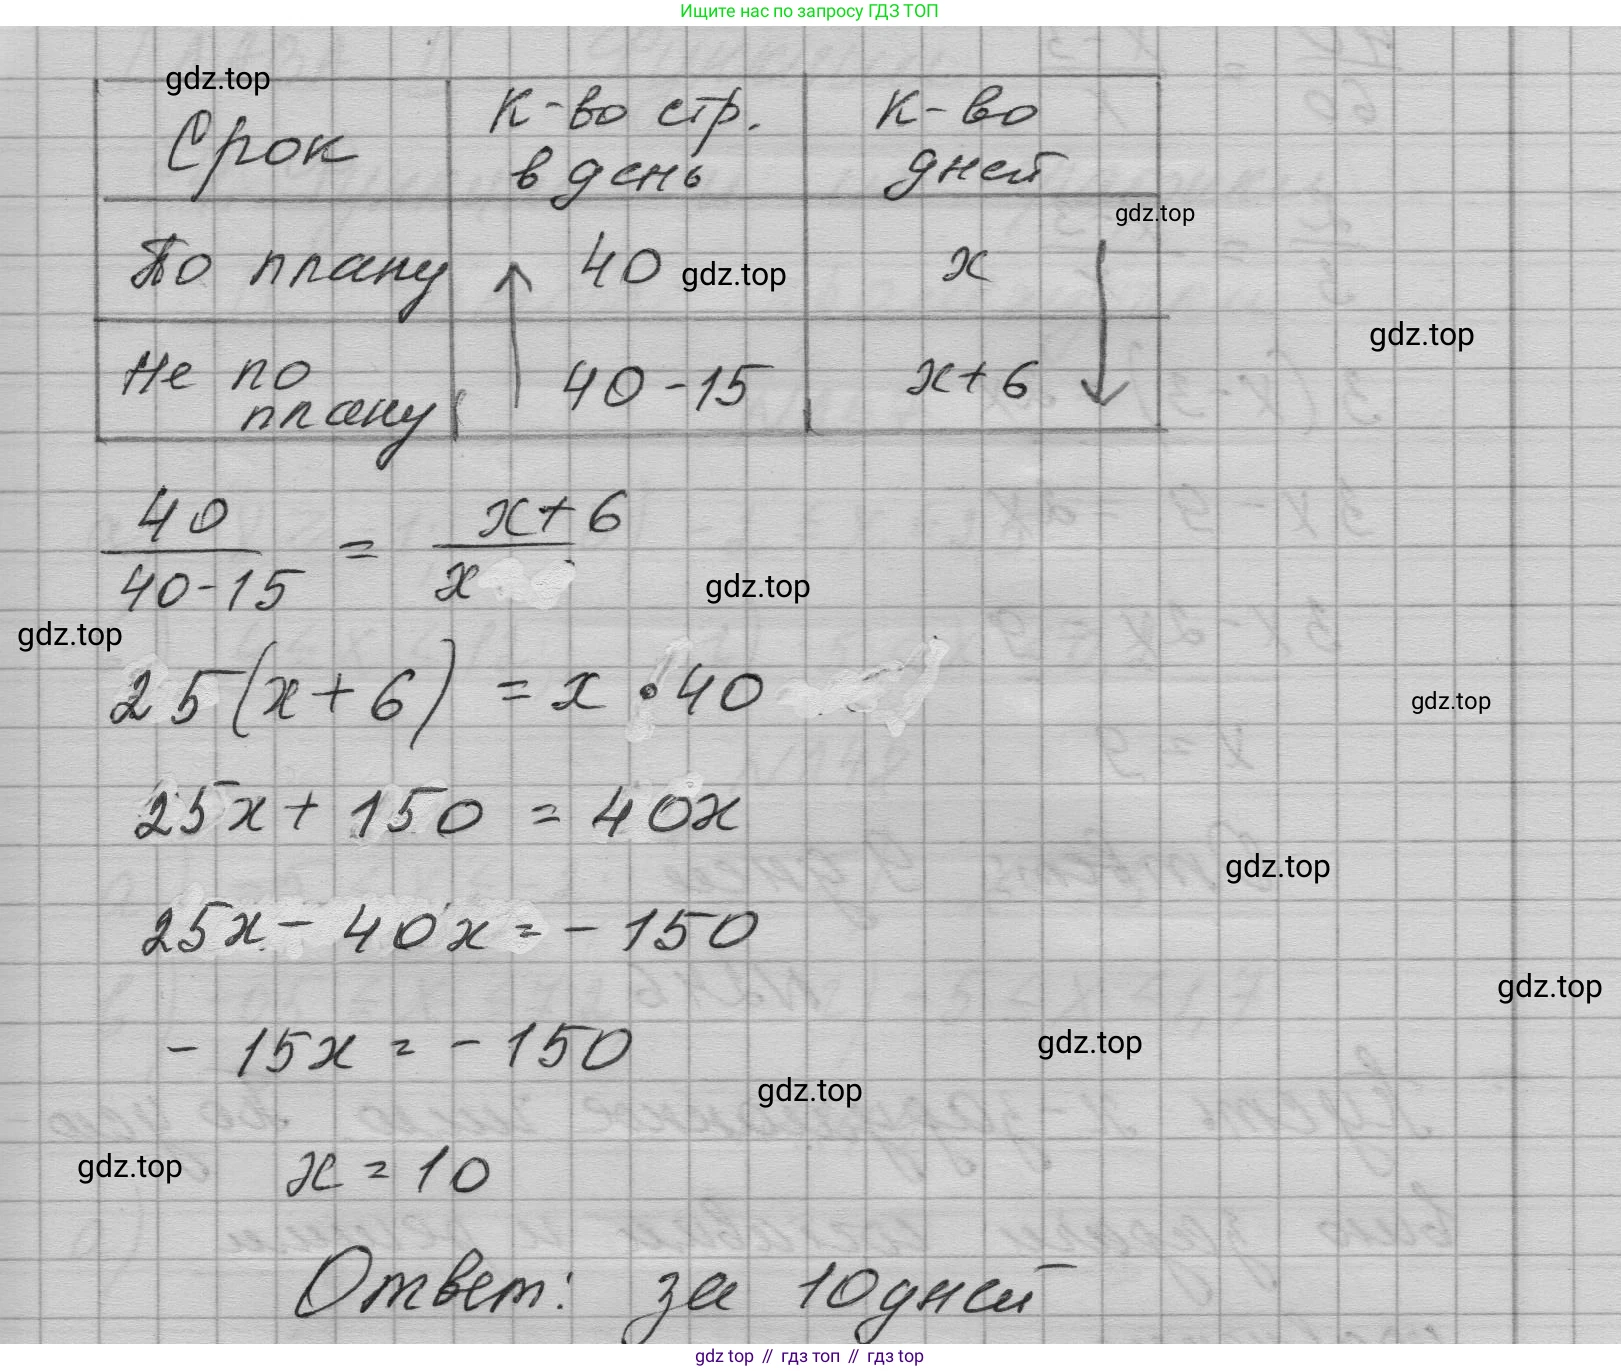 Ищите нас по запросу ГДЗ ТОП
gdz.top
Срок
К-во стр.
в день
К-во
дней
gdz.top
По плану
40
gdz.top
x
gdz.top
Не по
плану
40-15
x+6
40
40-15
=
x+6
x
gdz.top
gdz.top
25(x+6) = x • 40
gdz.top
25x + 150 = 40x
gdz.top
25x - 40x = - 150
gdz.top
- 15x = - 150
gdz.top
gdz.top
gdz.top
x = 10
Ответ: за 10 дней
gdz top // гдз топ // гдз top